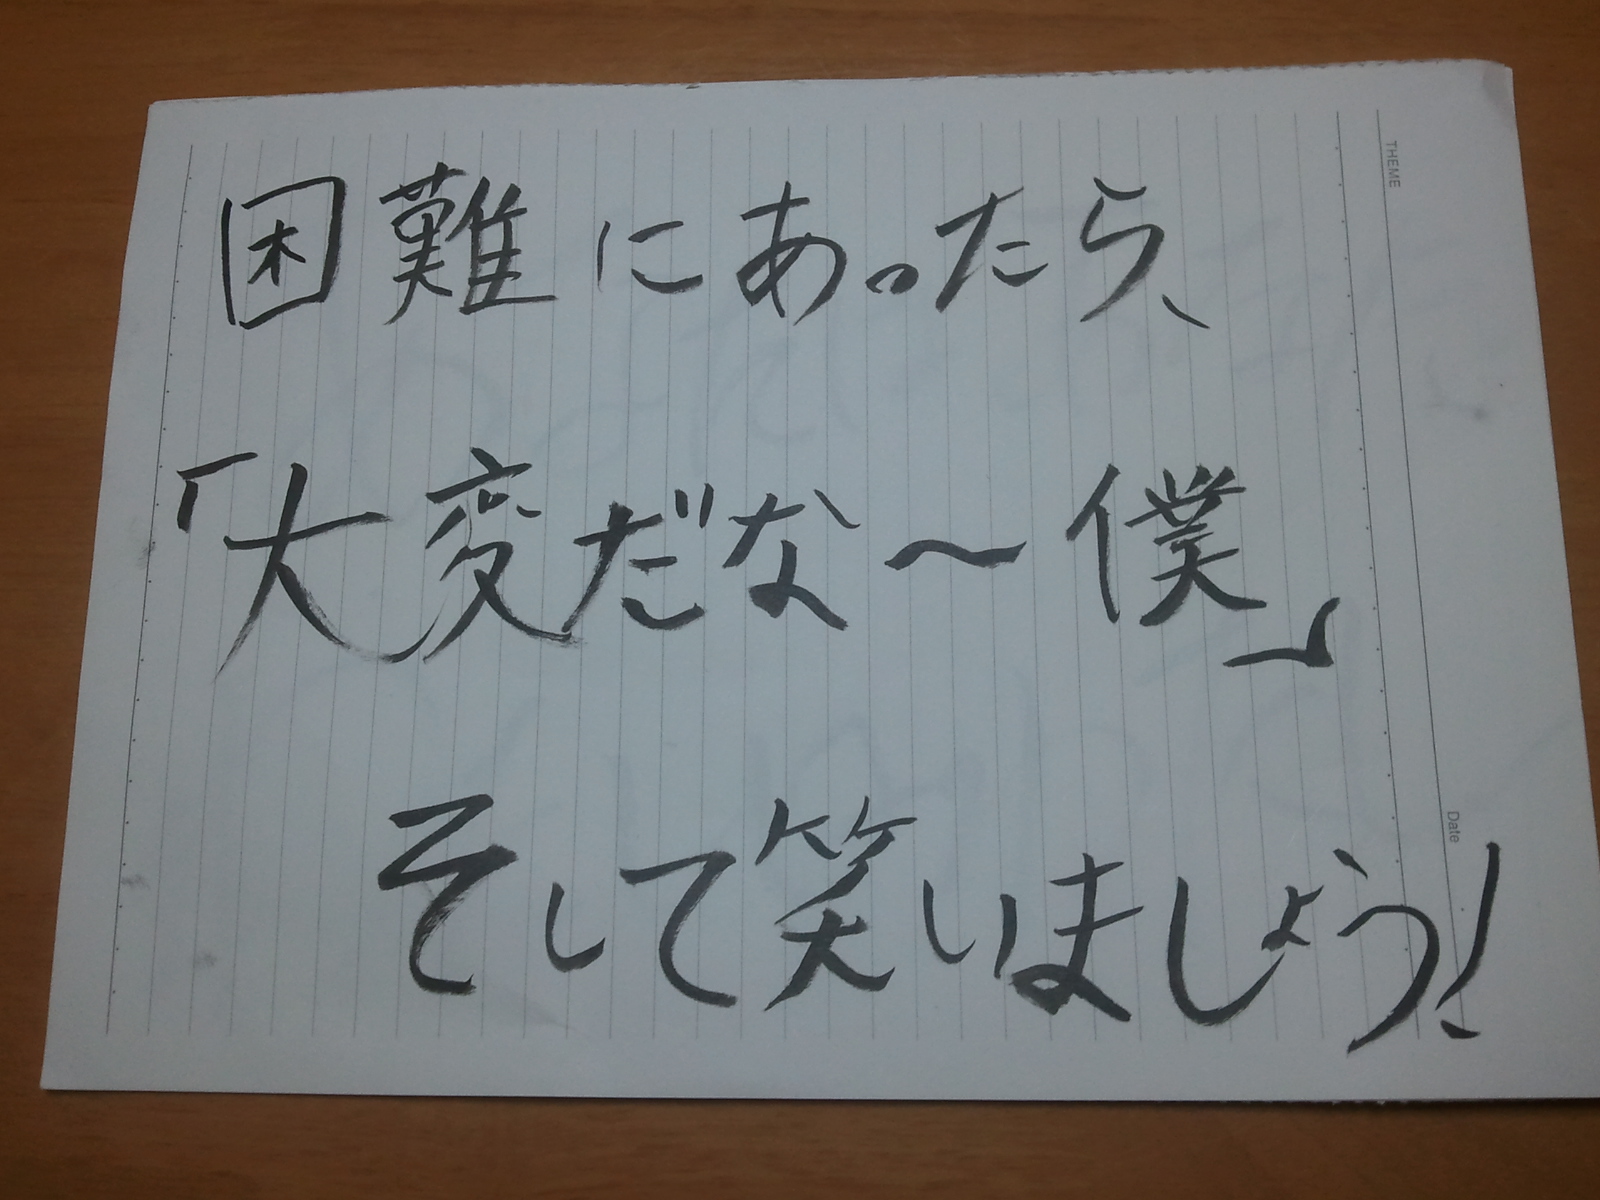 困難にあったら、
「大変だな〜僕」
そして笑いましょう!
THEME
Date